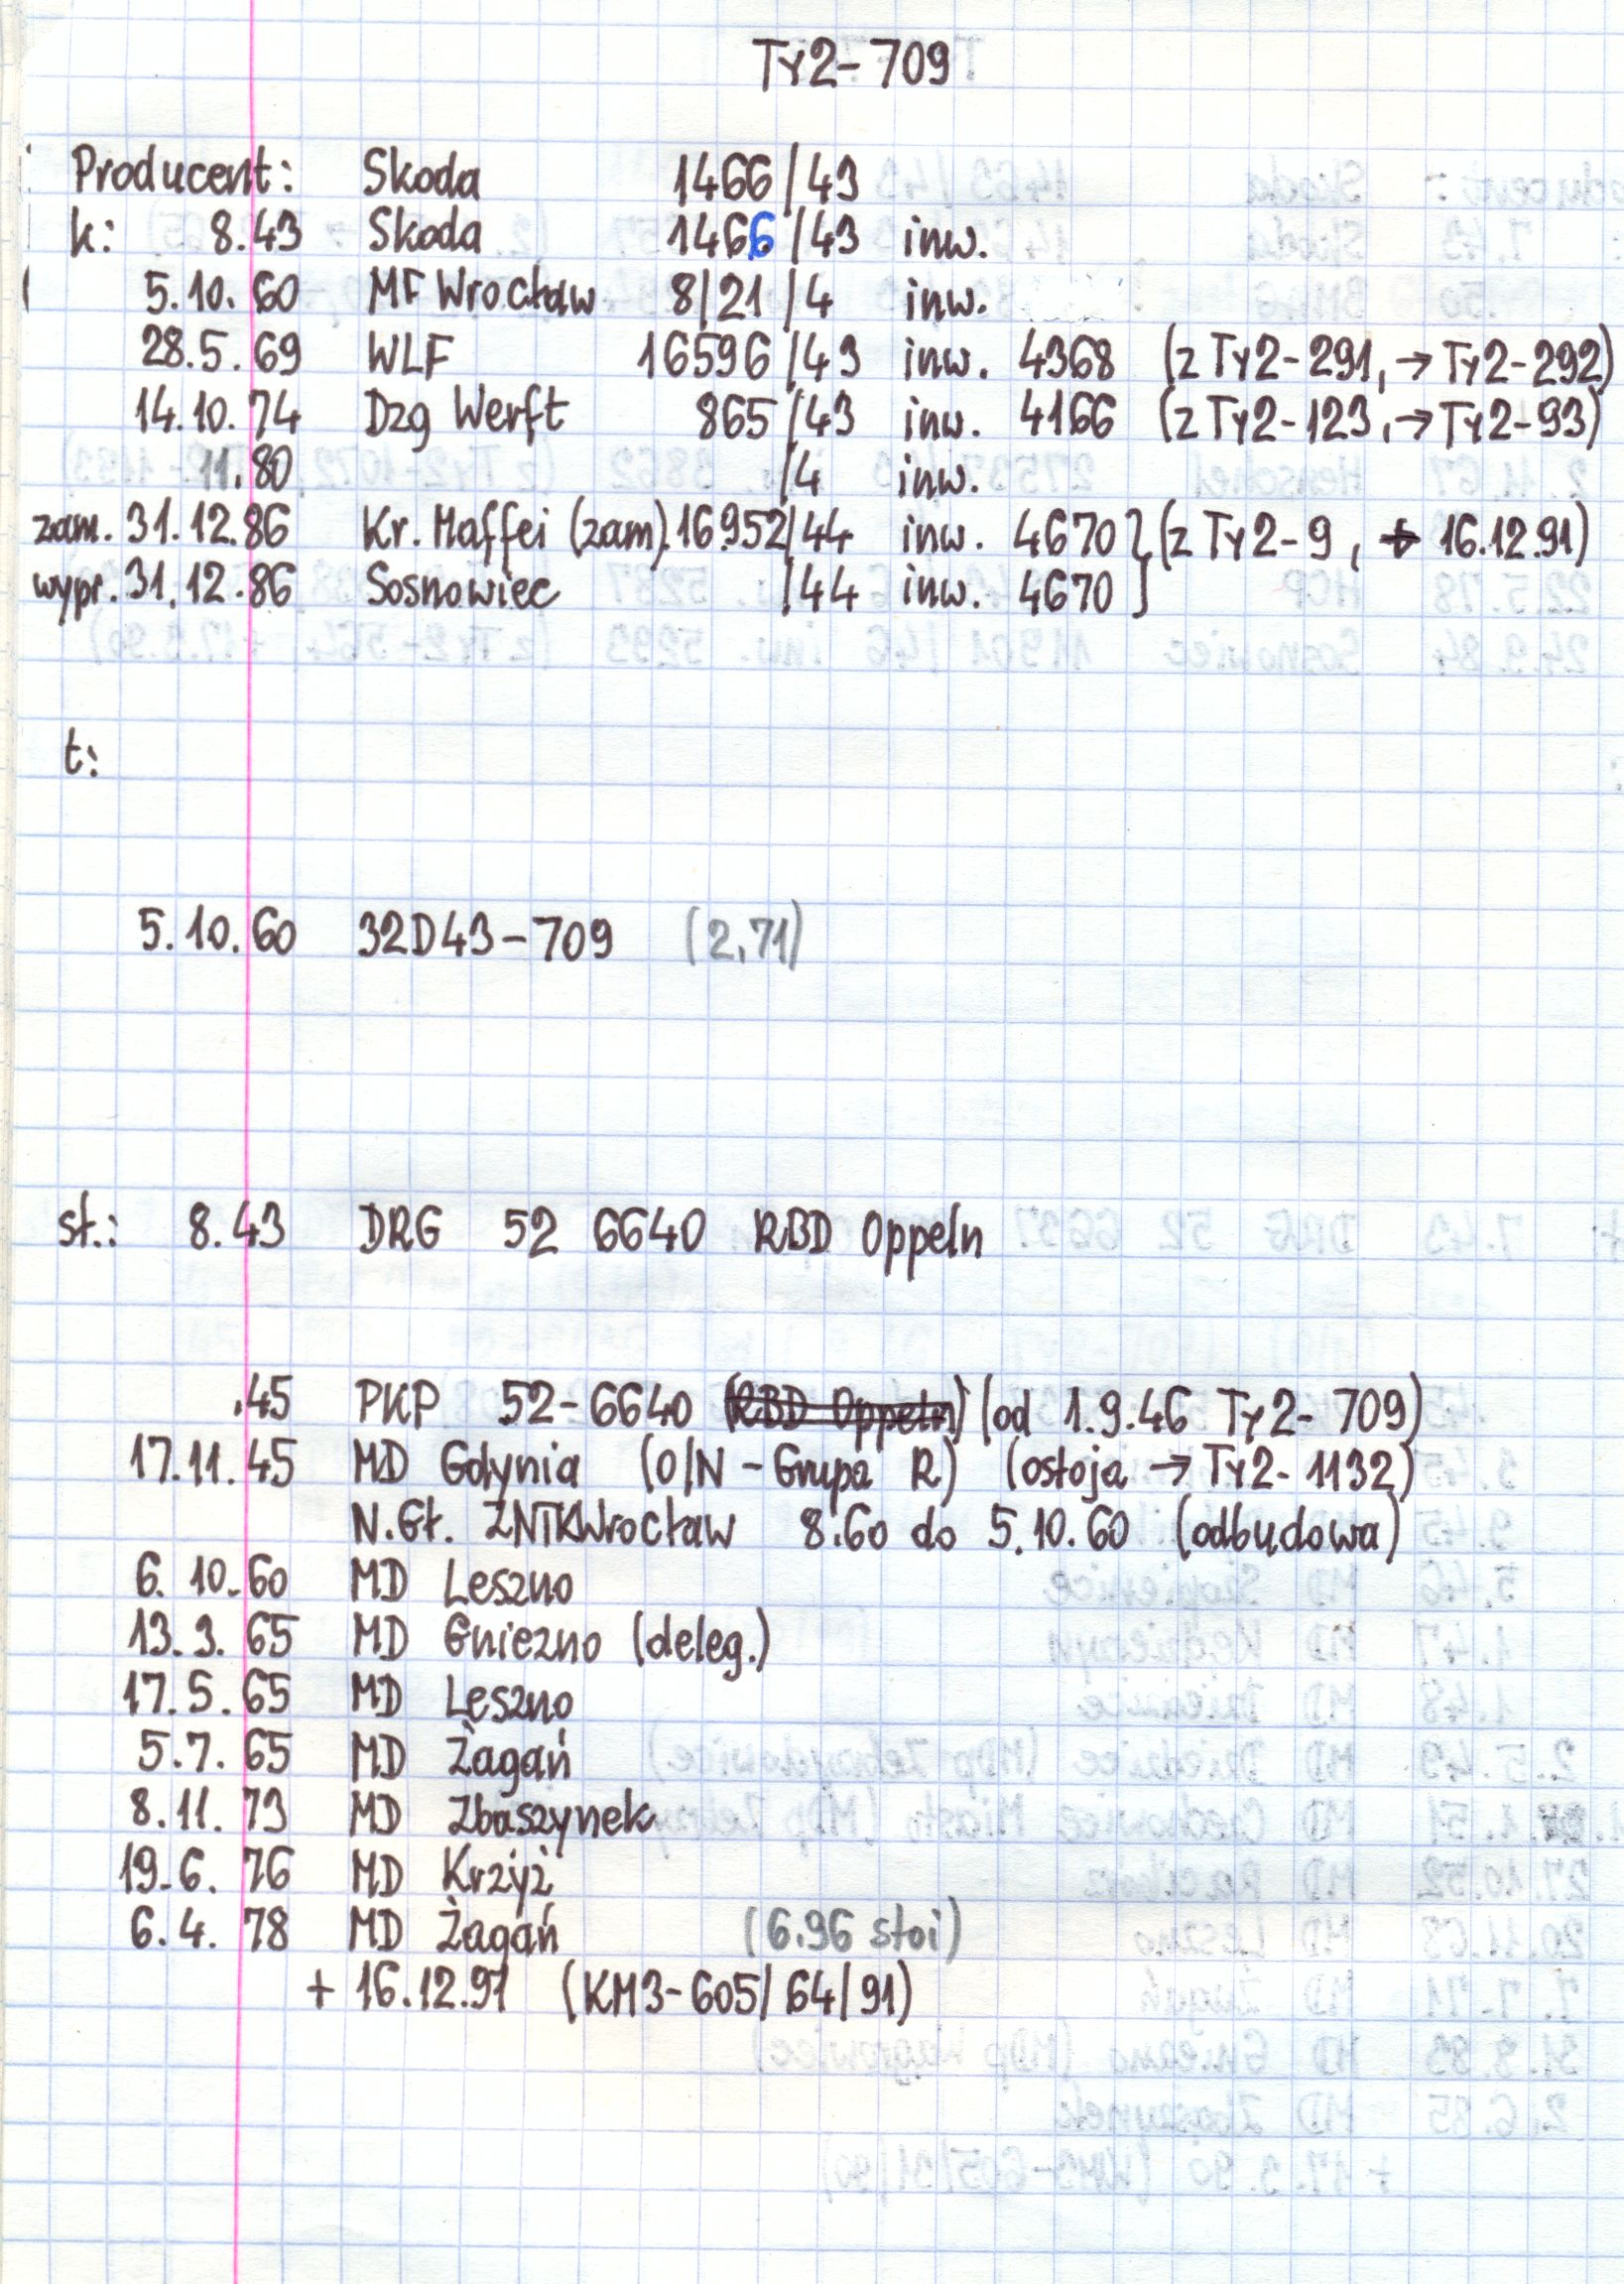 Ty2-709
Producent: Skoda 1466/43
k: 8.43 Skoda 1466/43 inw.
5.10.60 MF Wrocław 8/21/4 inw.
28.5.69 WLF 16596/43 inw. 4368 (z Ty2-291, → Ty2-292)
14.10.74 Dzg Werft 865/43 inw. 4166 (z Ty2-123, → Ty2-93)
11.80 /4 inw.
zam. 31.12.86 Kr. Maffei (zam). 16952/44 inw. 4670 } (z Ty2-9, + 16.12.91)
wypr. 31.12.86 Sosnowiec /44 inw. 4670
t:
5.10.60 32D43-709 (2.71)
st.: 8.43 DRG 52 6640 RBD Oppeln
.45 PKP 52-6640 (RBD Oppeln) (od 1.9.46 Ty2-709)
17.11.45 MD Gdynia (O/N - Grupa R) (ostoja → Ty2-1132)
N.Gł. ZNTKWrocław 8.60 do 5.10.60 (odbudowa)
6.10.60 MD Leszno
13.3.65 MD Gniezno (deleg.)
17.5.65 MD Leszno
5.7.65 MD Żagań
8.11.73 MD Zbąszynek
19.6.76 MD Krzyż
6.4.78 MD Żagań (6.96 stoi)
+ 16.12.91 (KM3-605/64/91)